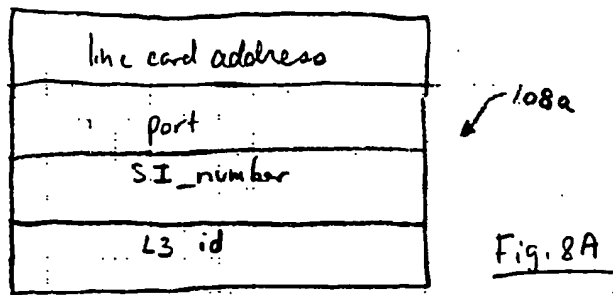 line card address
108a
port
SI_number
L3 id
Fig. 8A